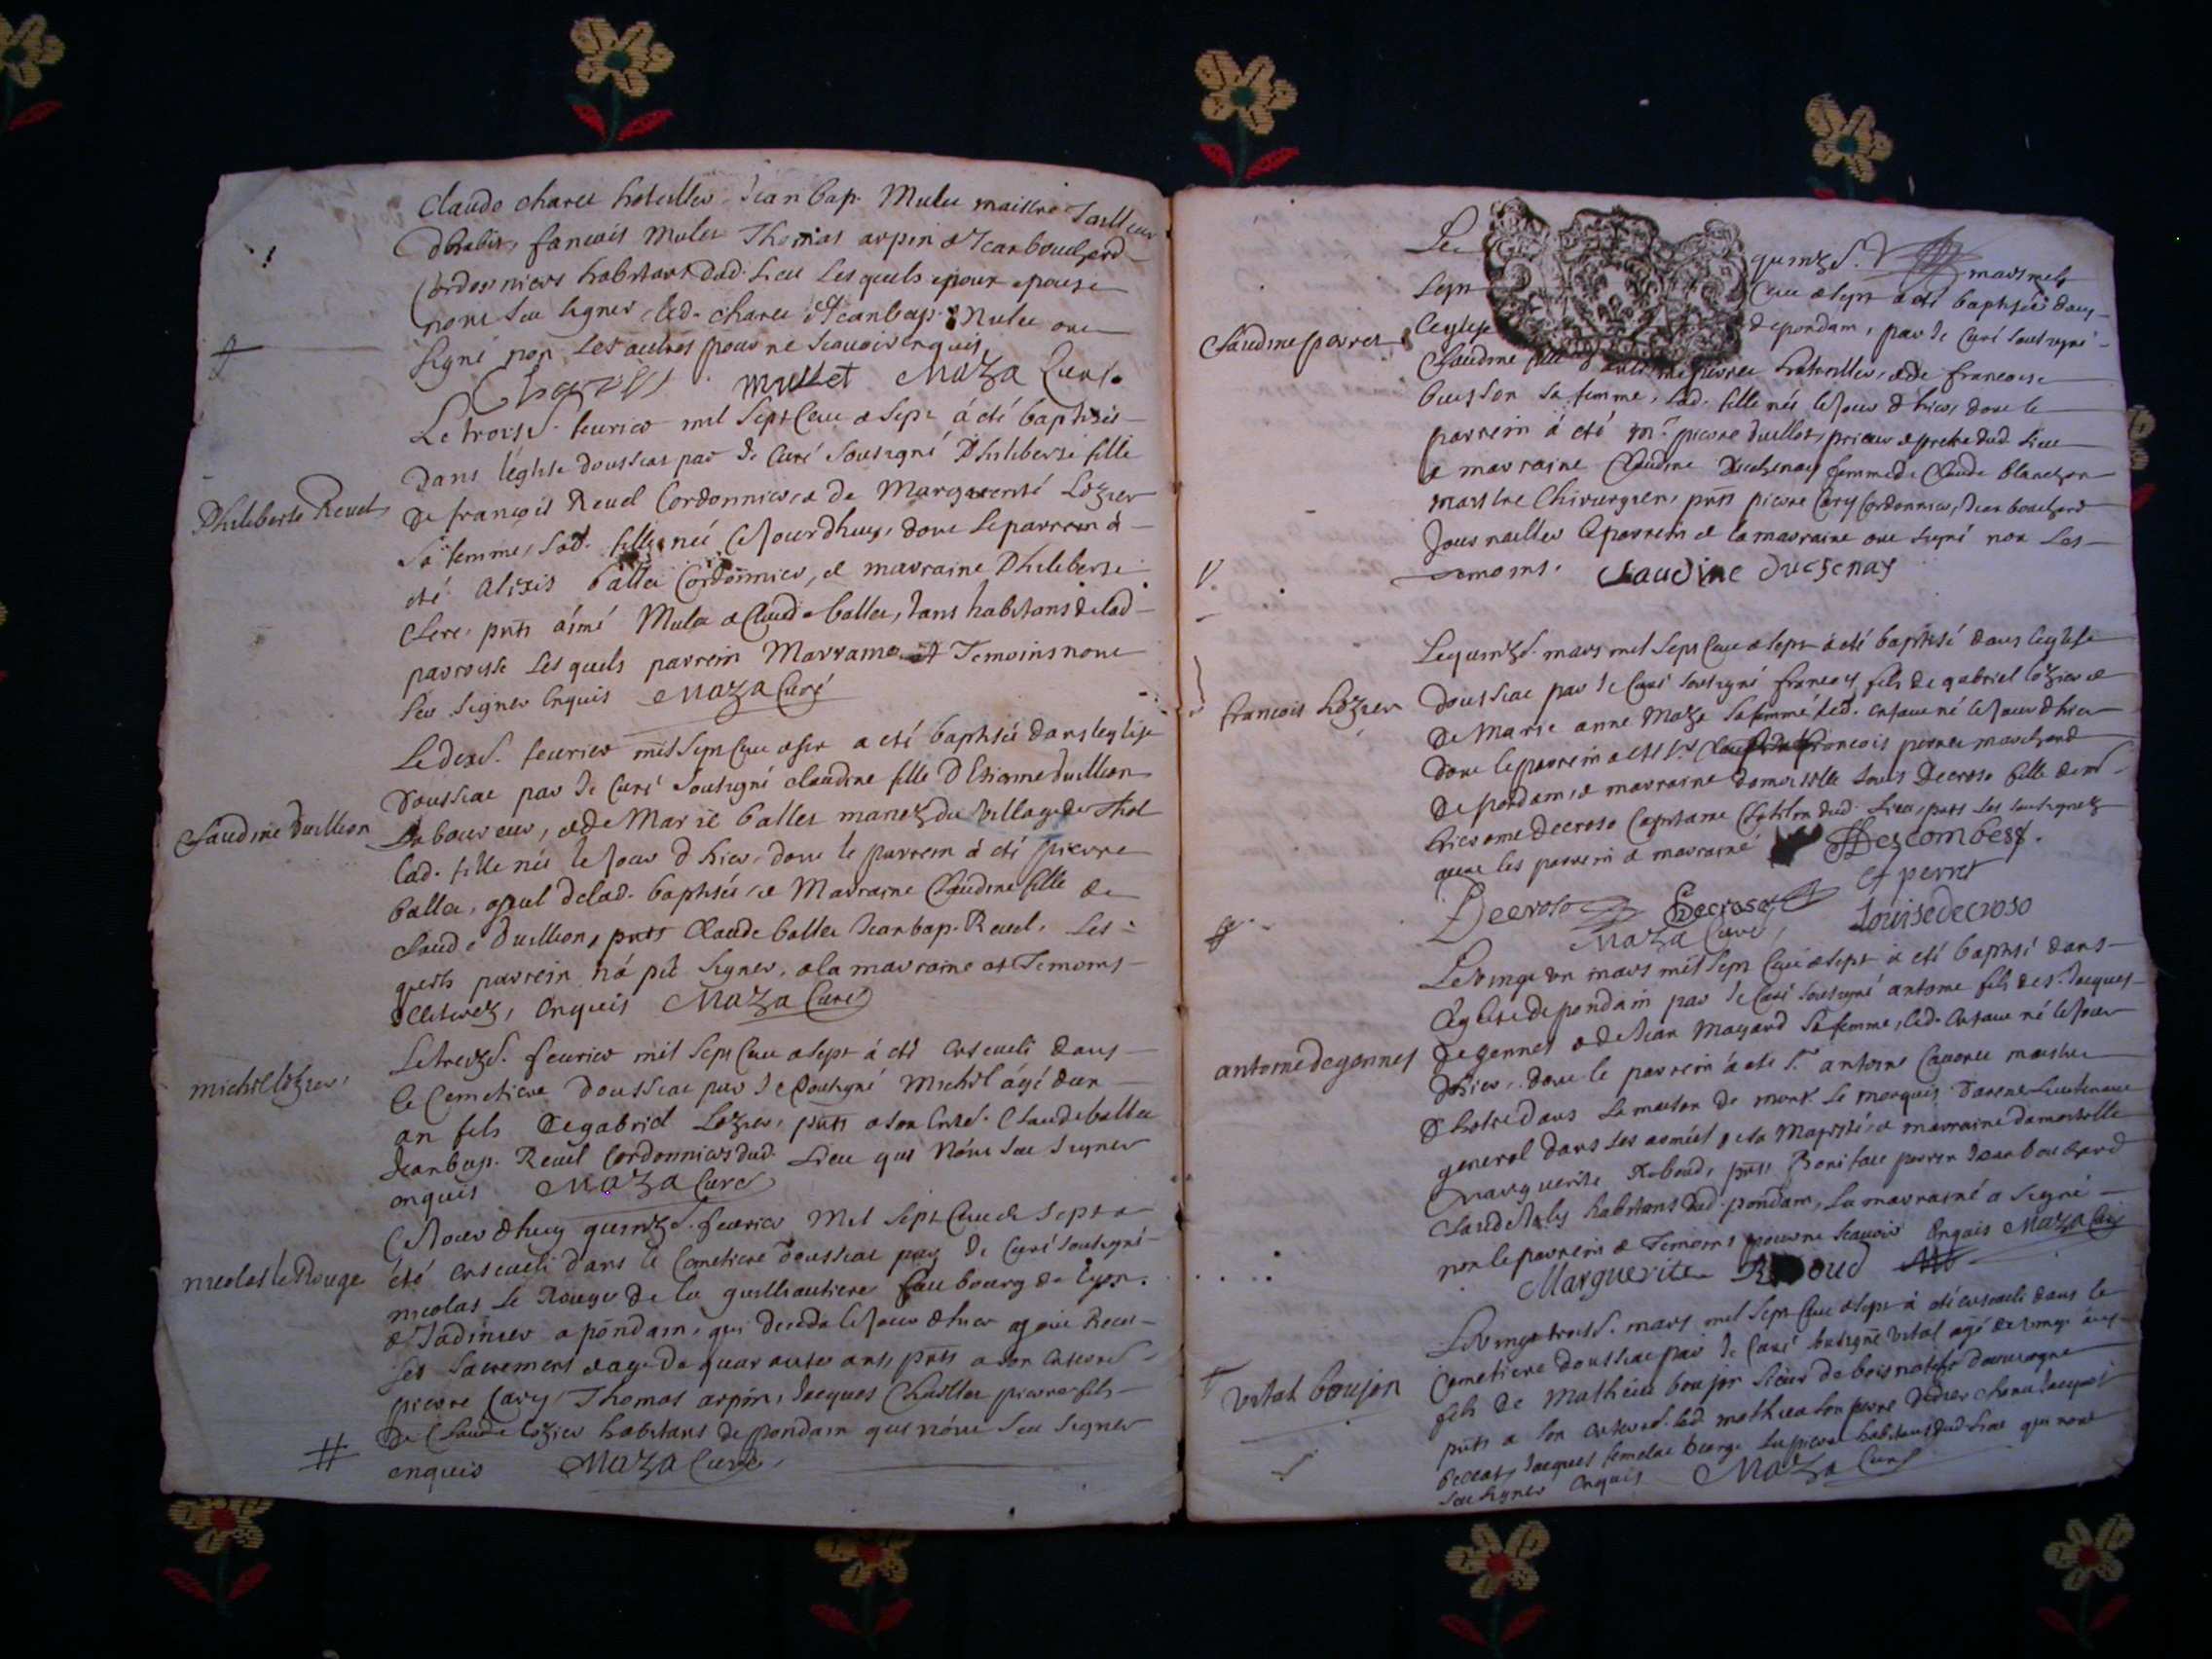 Claude charu hoteiller Jean bap. Mulu maistre Tailleur
dhabits, francois Mulet Thomas arpin & Jean bouchard
Cordonniers habitans dud. Lieu Lesquels epoux epouse
nont Sceu signer, led. charu & Jean bap. Mulu ont
signé non Les autres pour ne scauoir enquis
mullet Maza Curé
Le troise. feurier mil Sept Cent & Sept à été baptisée
Dans l'eglise doussiat par Je Curé Soussigné Philiberte fille
Philiberte Reuel
De françois Reuel Cordonnier, & de Marguerite Lozier
Sa femme, Lad. fille née Cejourdhuy, dont Le parrein à
été Alixis ballet Cordonnier, & marraine Philiberte
Clere, pnts aimé Mulet & Claude ballet, tans habitans de lad
parroisse Lesquels parrein Marraine et Temoins nont
Sceu Signer Enquis Maza Curé
Le dixe. feurier mil Sept Cent & Sept a eté baptisée dans leglise
Doussiat par Je Curé Soussigné claudine fille D Etienne duillion
Claudine Duillion
Laboureur, & de Marie ballet mariez du Village de Thol
Lad. fille née le Jour d hier, dont le parrein à été pierre
ballet, ayeul de lad. baptisée, & Marraine Claudine fille de
Claude Duillion, pnts Claude ballet Jean bap. Reuel, Les
quels parrein n'a pu Signer, & la marraine et Temoins
illiterez, Enquis Maza Curé
Le treize. feurier mil Sept Cent & Sept à été Enseueli dans
michel lozier
Le Cemetiere doussiat par Je Soussigné Michel âgé d'un
an fils de gabriel Lozier, pnts a son Enter. Claude ballet
Jean bap. Reuel Cordonniers dud. Lieu qui n'ont Sceu Signer
enquis Maza Curé
Cejourdhuy quinze. feurier Mil Sept Cent & Sept a
nicolas le Rouge
été enseueli dans le Cemetiere doussiat par Je Curé Soussigné
nicolas Le Rouge de la guillautiere faubourg de Lyon
& Jadinier a pondain, qui deceda le Jour d hier apres Receu
Ses Sacremens & age de quarante ans, pnts a son enter.
pierre Cary, Thomas arpin, Jacques Chiollet pierre fils
De Claude lozier habitans de pondain qui n'ont Sceu Signer
enquis Maza Curé
Le quinze. mars mil
Sept Cent & Sept à été baptisée dans
Claudine perret
leglise de pondain, par Je Curé Soussigné
Claudine fille d perret hoteiller, & de francoise
buisson Sa femme, Lad. fille née le Jour d hier, dont le
parrein à été Mr. pierre duillot, prieur & pretre dud. Lieu
& marraine Claudine Duchenay femme de Claude blanchon
maistre Chirurgien, pnts pierre Cary Cordonnier, Jean bouchard
Journallier Le parrein & la marraine ont signé non Les
temoins. Claudine duchenay
Le quinze. mars mil Sept Cent & Sept à été baptisé dans leglise
françois Lozier
doussiat par Je Curé Soussigné françois fils de gabriel lozier &
De Marie anne Maza Sa femme Led. enfant né le Jour d hier
dont le parrein a été Sr. françois perret marchand
De pondain, & marraine damoiselle Louise Decroso fille de mr
hierome Decroso Capitaine Chatelain dud. Lieu, pnts Les Soussignez
auec les parrein & marraine Descombess.
Decroso Decroso f perret
Maza Curé Louise decroso
Le vingt un mars mil Sept Cent & Sept à été baptisé dans
L'eglise de pondain par Je Curé Soussigné antoine fils de Sr. Jacques
antoine degennes
Degennes & de Jean Magard Sa femme, Led. Enfant né le Jour
d hier, dont le parrein à été Sr. antoine maistre
d hotel dans La maison de monsr. Le marquis Darene Lieutenant
general dans les armées de Sa Majesté, & marraine damoiselle
Marguerite Reboud, pnts Boniface perret Jean bouchard
Claude habitans dud. pondain, La marraine a Signé
non le parrein & Temoins pour ne Scauoir Enquis Maza Curé
Marguerite
Le vingt troise. mars mil Sept Cent & Sept à été enseueli dans le
Vital boujon
Cemetiere doussiat par Je Curé Soussigné Vital agé de vingt ans
fils de Mathieu boujon d'auuergne
pnts a Son enter. led. mathieu Son pere
Jacques habitans dud. Lieu qui nont
Sceu Signer Enquis Maza Curé